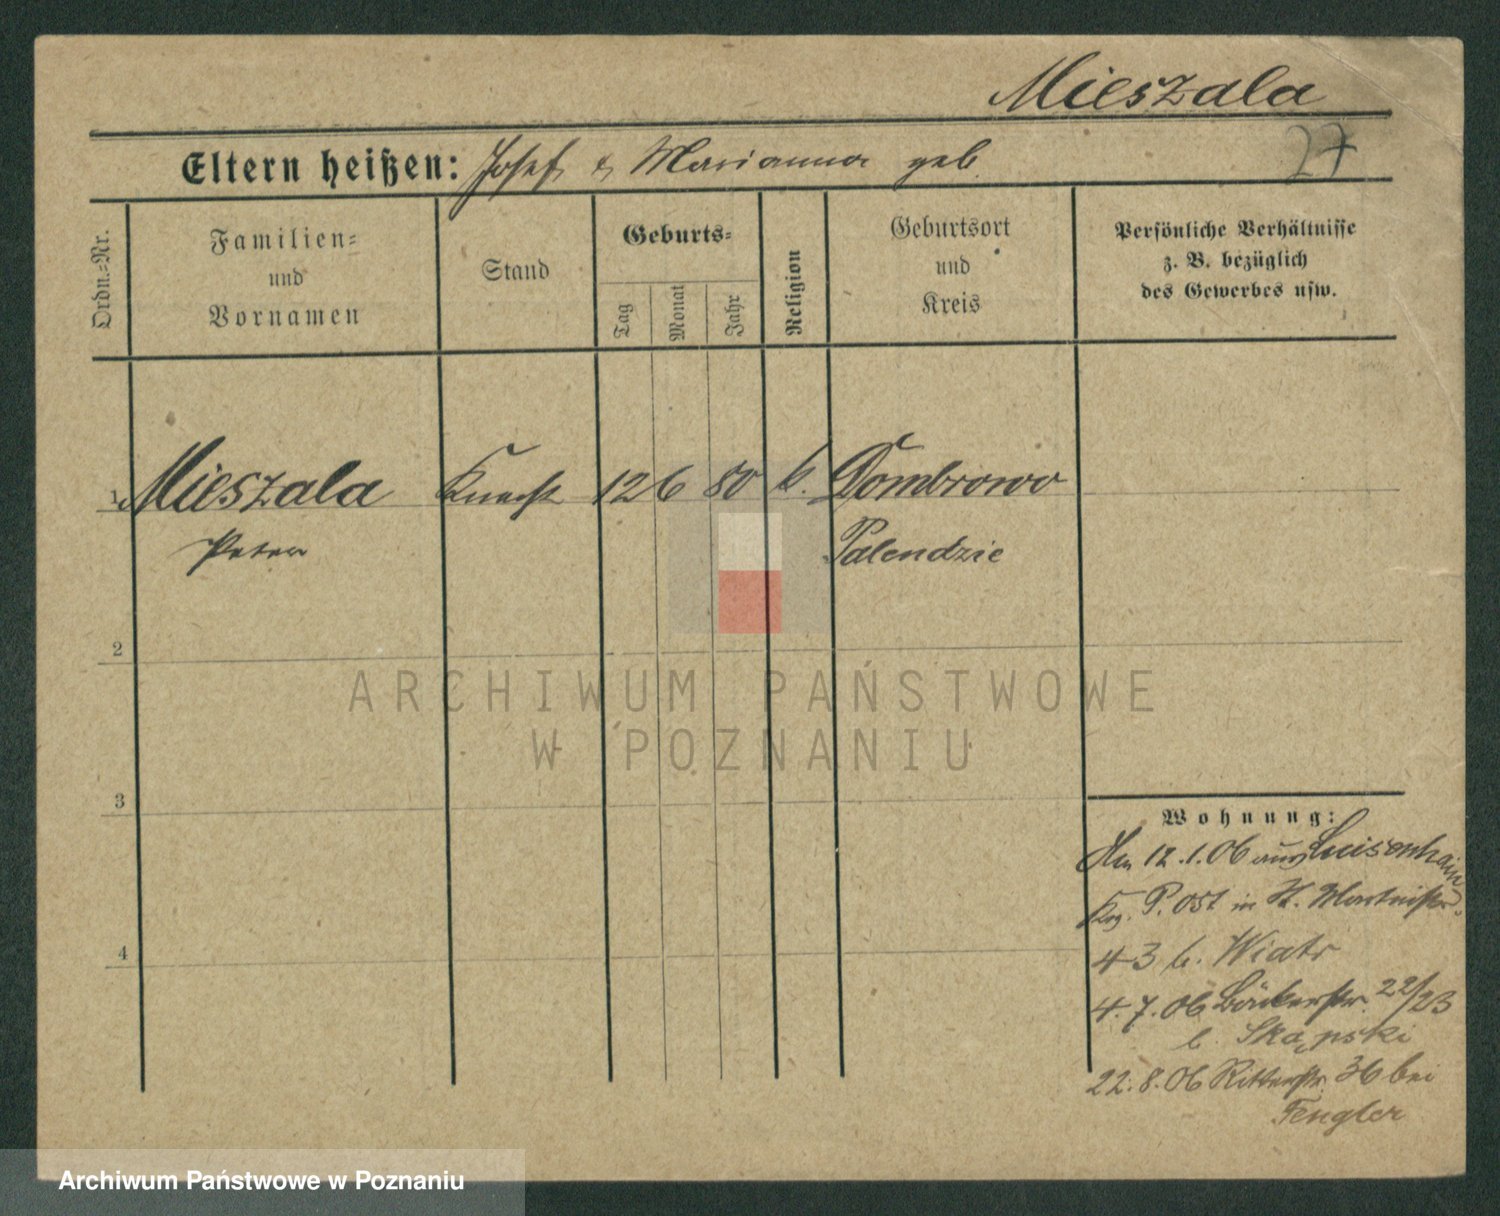 Mieszala
27
Eltern heißen: Josef & Marianna geb.
Ordn.=Nr.
Familien=
und
Vornamen
Stand
Geburts=
Tag
Monat
Jahr
Religion
Geburtsort
und
Kreis
Persönliche Verhältnisse
z. B. bezüglich
des Gewerbes usw.
1 Mieszala Knecht 12 6 80 k. Dombrowo
Peter Palendzie
2
ARCHIWUM PAŃSTWOWE
W POZNANIU
3
Wohnung:
12.1.06 aus Luisenhain
Krg. P. Ost in St. Martinstr.
4
43 b. Wiatr
4.7.06 Bäckerstr. 22/23
b. Skąpski
22.8.06 Ritterstr. 36 bei
Fengler
Archiwum Państwowe w Poznaniu